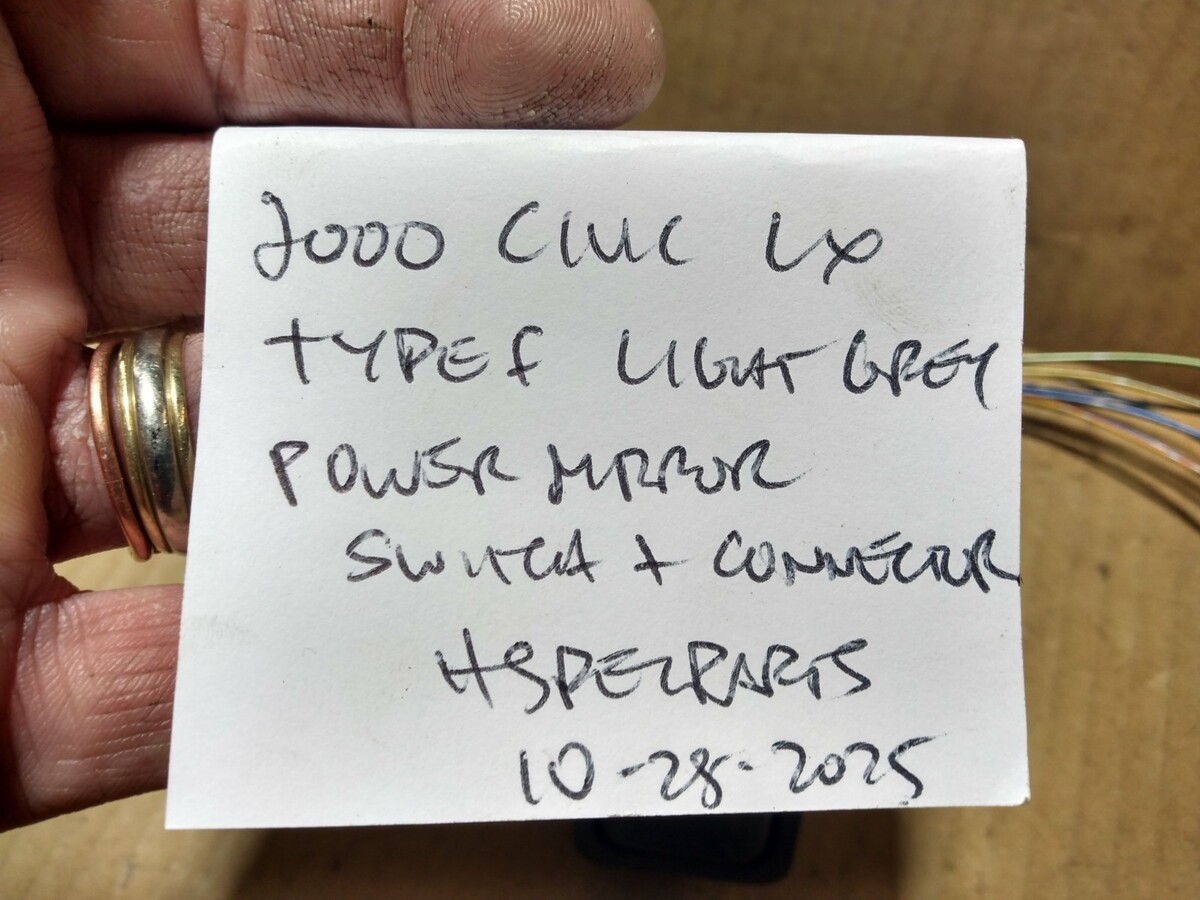 2000 CIVIC LX
TYPE F LIGHT GREY
POWER MIRROR
SWITCH + CONNECTOR
HSPECPARTS
10-28-2025